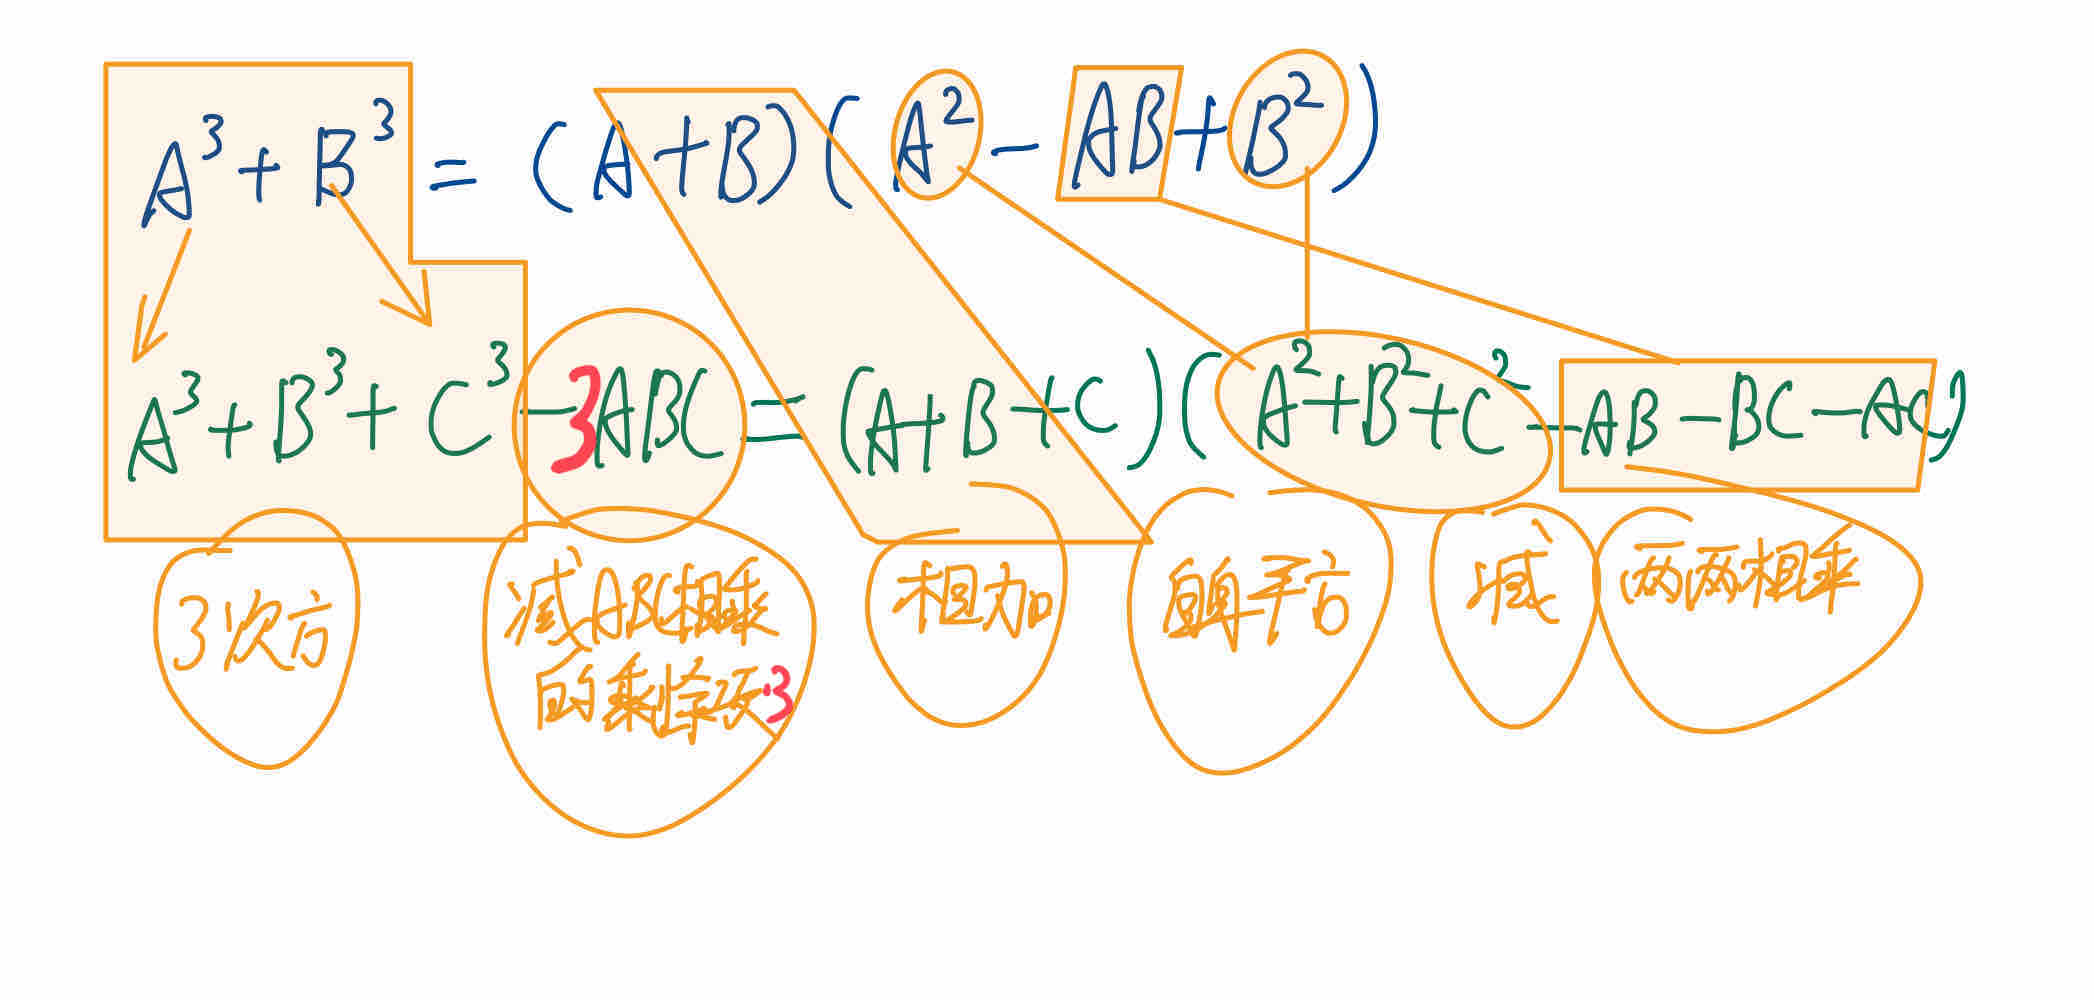 A³+B³=(A+B)(A²-AB+B²)
A³+B³+C³-3ABC=(A+B+C)(A²+B²+C²-AB-BC-AC)
3次方
减ABC相乘
的乘积项3
相加
平方
减
两两相乘